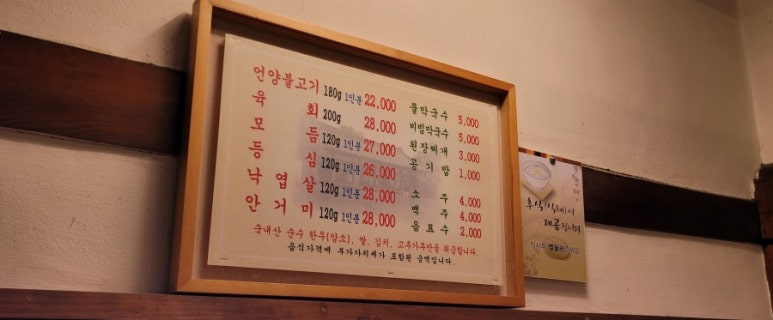 언양불고기 180g 1인분 22,000
육 회 200g 28,000
모 듬 120g 1인분 27,000
등 심 120g 1인분 26,000
낙 엽 살 120g 1인분 28,000
안 거 미 120g 1인분 28,000
물막국수 5,000
비빔막국수 5,000
된장찌개 3,000
공 기 밥 1,000
소 주 4,000
맥 주 4,000
음 료 수 2,000
국내산 순수 한우(암소), 쌀, 김치, 고추가루만을 취급합니다.
음식가격에 부가가치세가 포함된 금액입니다.
후식